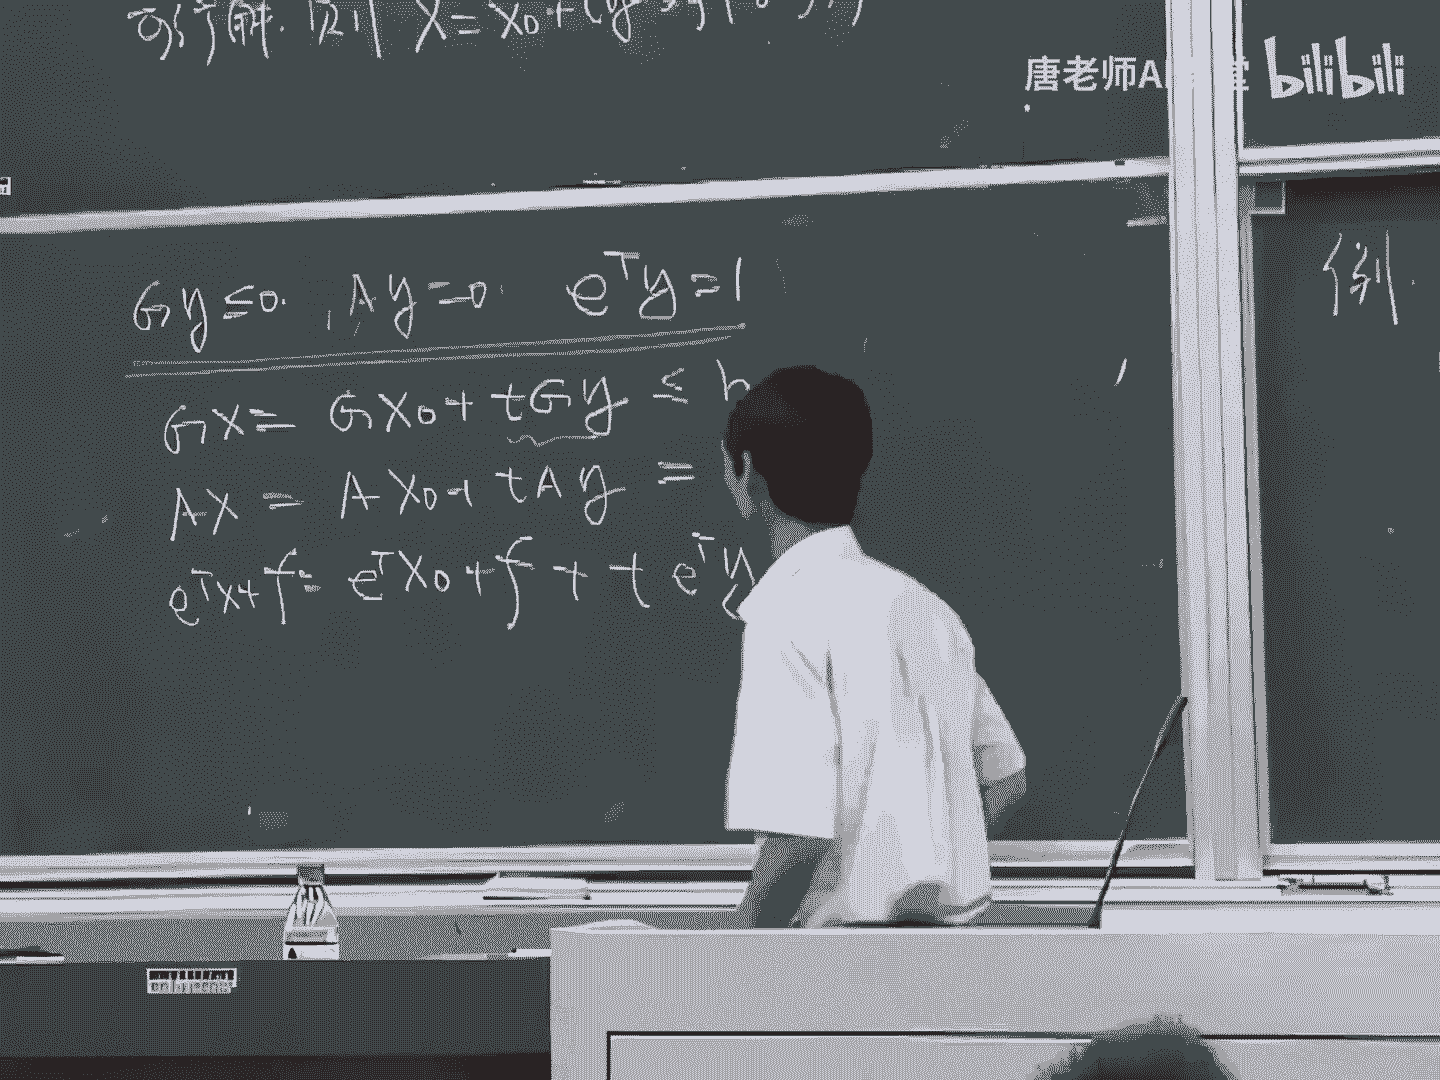 可行解. 则 X = X₀ +
唐老师A 堂 bilibili
Gy ≤ 0. , Ay = 0 eᵀy = 1
例.
GX = GX₀ + tGy ≤ h
AX = AX₀ + tAy =
eᵀX + f = eᵀX₀ + f + t eᵀy